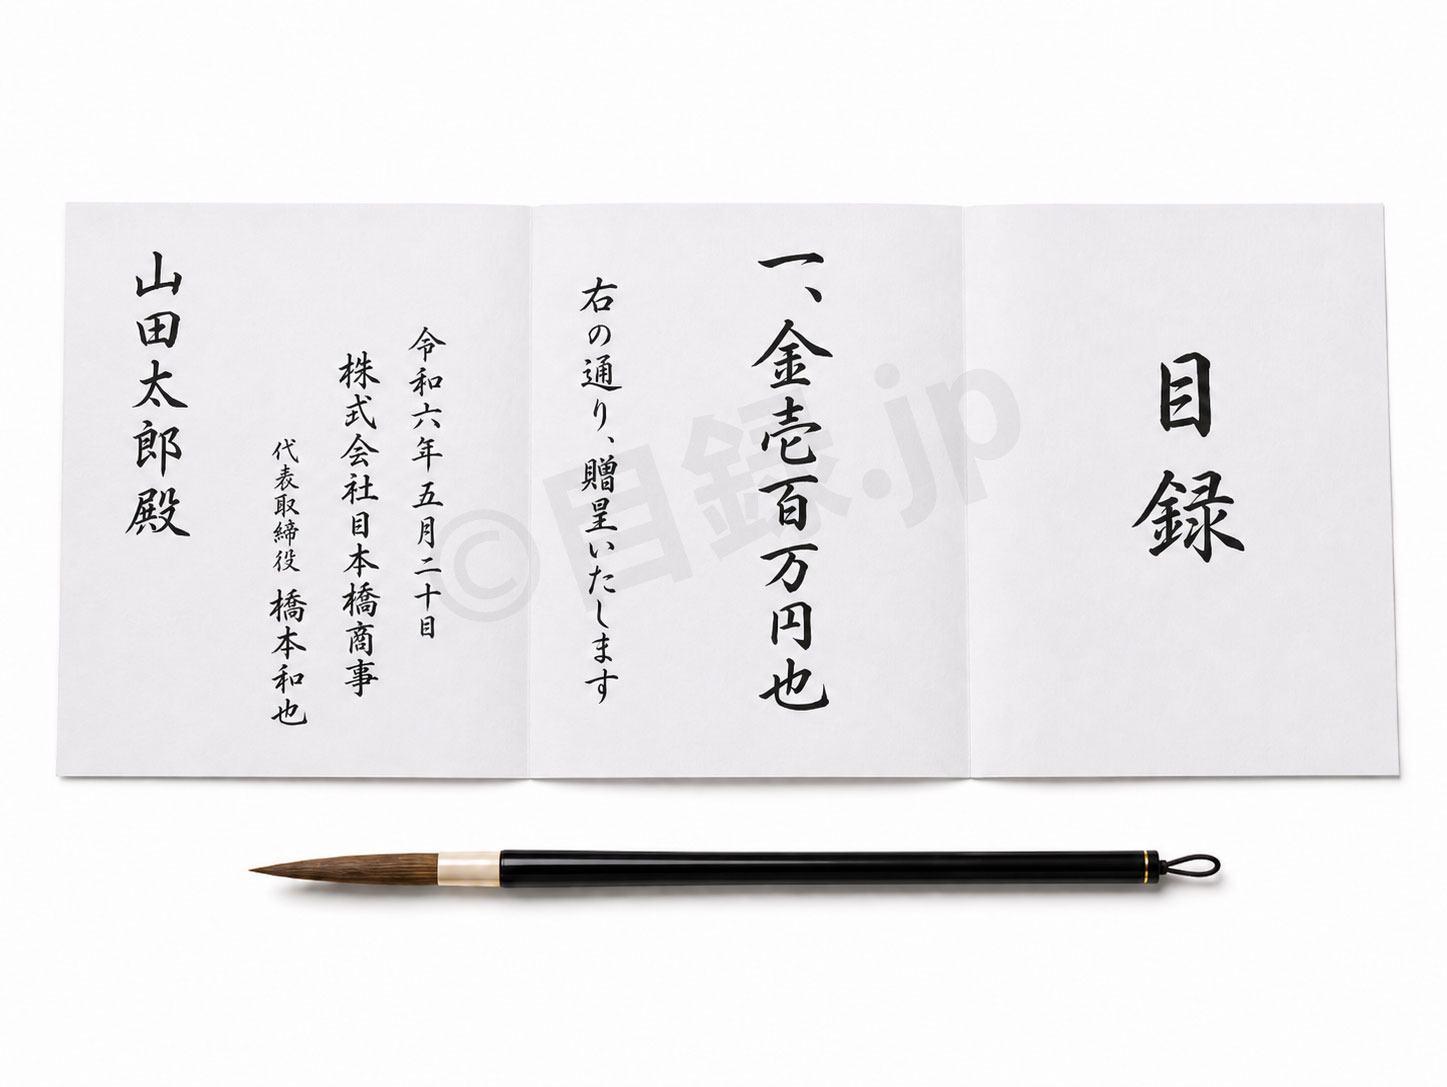 目録
一、金壱百万円也
右の通り、贈呈いたします
令和六年五月二十目
株式会社目本橋商事
代表取締役 橋本和也
山田太郎殿
©目録.jp